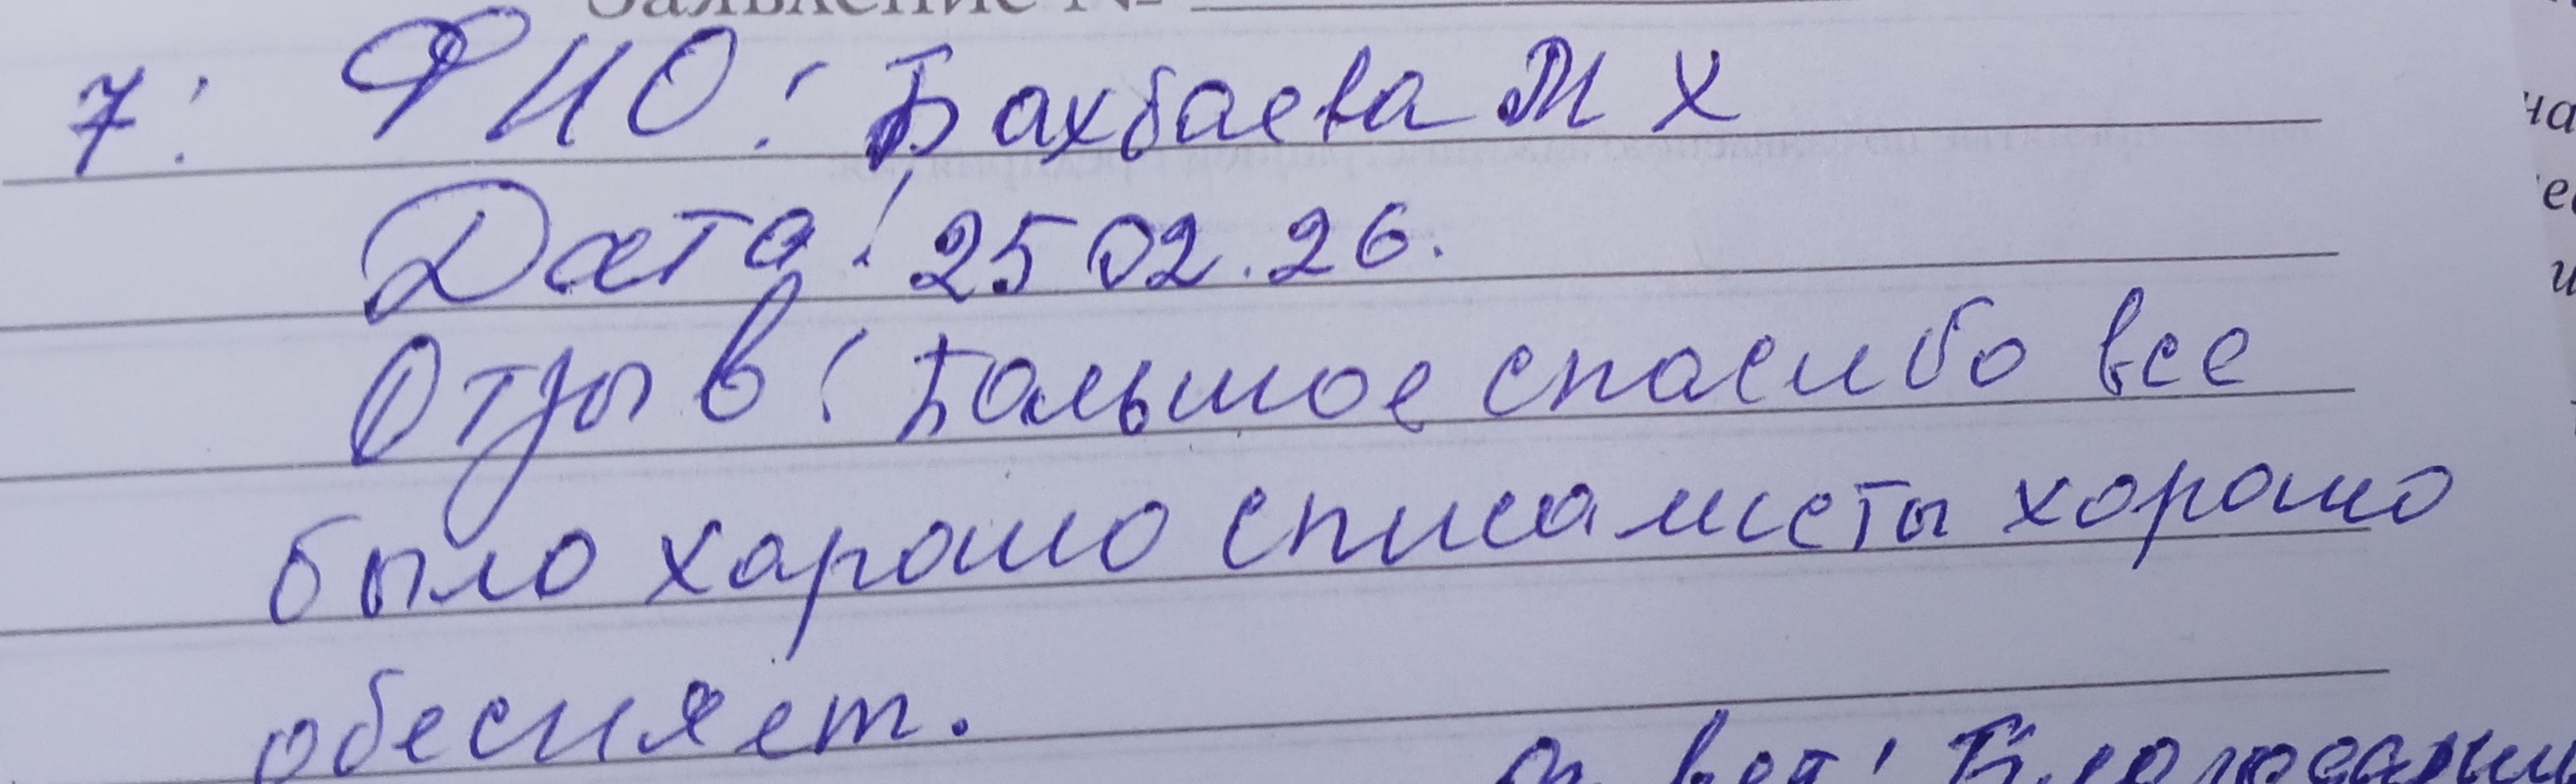 Заявление №
7: ФИО: Бахбаева М Х
Дата: 25 02. 26.
Отзыв: Большое спасибо все
было хорошо списалисты хорошо
обесняет.